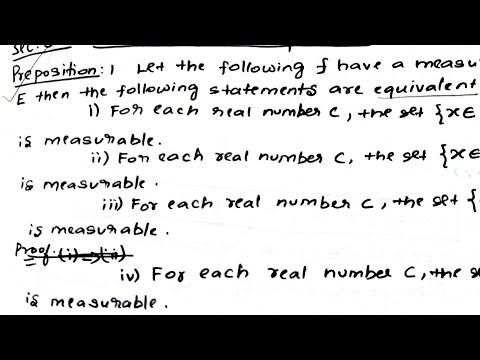 Preposition: 1 Let the following f have a measu
E then the following statements are equivalent
i) For each real number c, the set {x∈
is measurable.
ii) For each real number c, the set {x∈
is measurable.
iii) For each real number c, the set {
is measurable.
Proof. (i)⇒(ii)
iv) For each real number c, the se
is measurable.